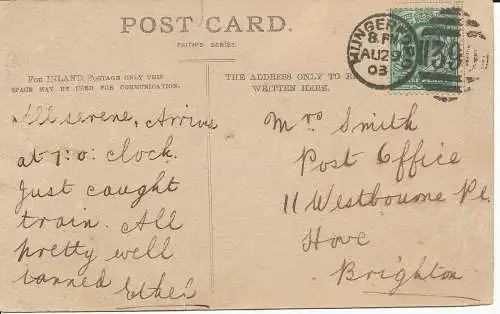 POST CARD.
FOR INLAND POSTAGE ONLY THIS
SPACE MAY BE USED FOR COMMUNICATION.
THE ADDRESS ONLY TO BE
WRITTEN HERE.
HUNGERFORD
8 PM
AU 29
03
139
All serene, Arrive
at 7:0: clock.
Just caught
train. All
pretty well
tanned
Ethel
Mrs Smith
Post Office
11 Westbourne Pl.
Hove
Brighton